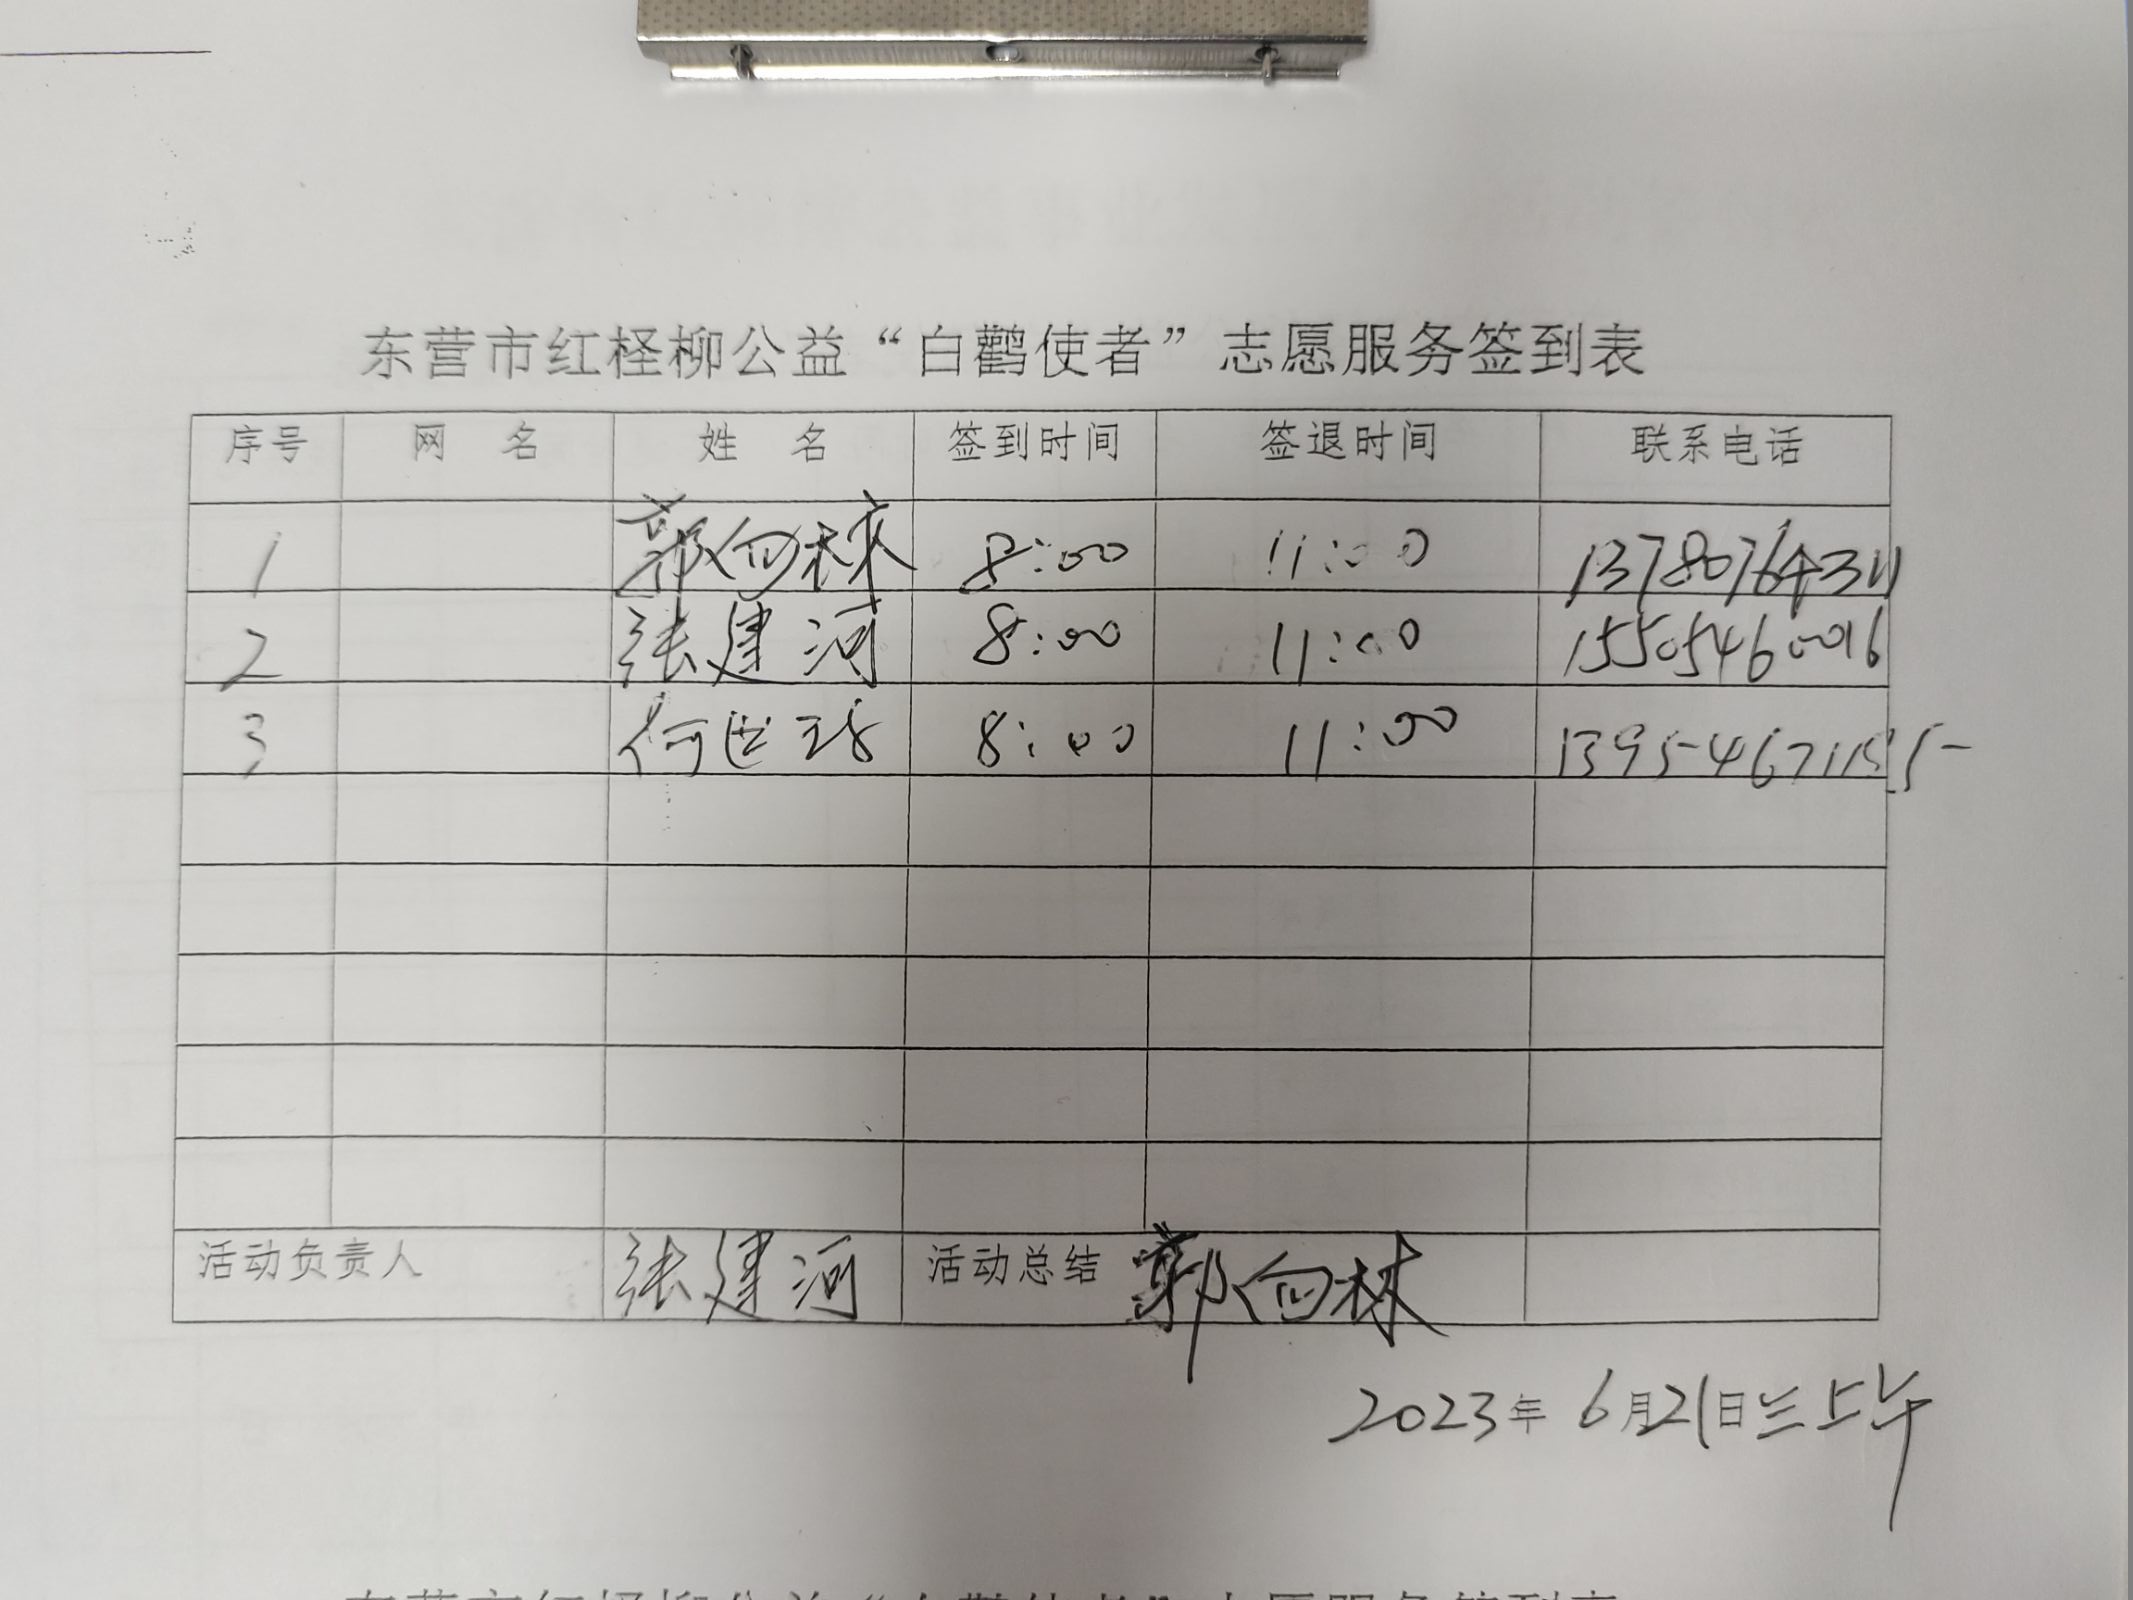 东营市红柽柳公益“白鹳使者”志愿服务签到表
序号 网 名 姓 名 签到时间 签退时间 联系电话
1 郭向林 8:00 11:00 13780764311
2 张建河 8:00 11:00 15505460016
3 何 8:00 11:00
活动负责人 张建河 活动总结 郭向林
2023年6月21日三上午
东营市红柽柳公益“白鹳使者”志愿服务签到表